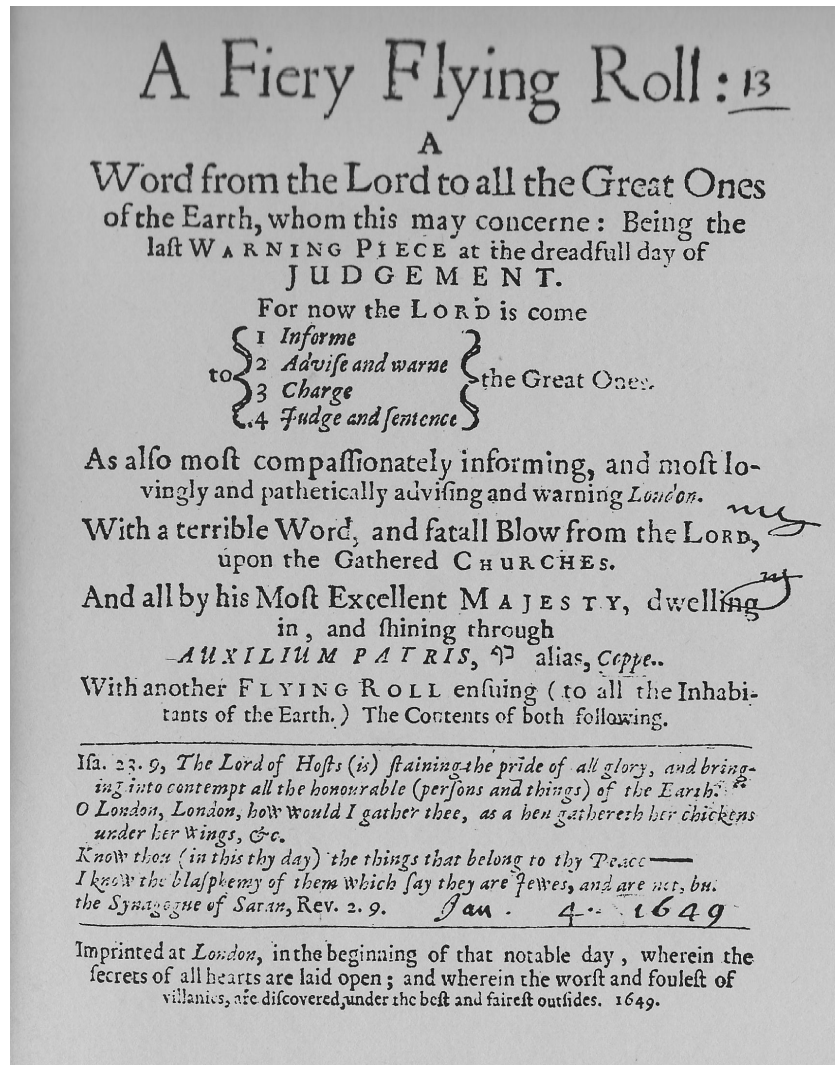 A Fiery Flying Roll: 13
A
Word from the Lord to all the Great Ones
of the Earth, whom this may concerne: Being the
laſt WARNING PIECE at the dreadfull day of
JUDGEMENT.
For now the LORD is come
to
1 Informe
2 Adviſe and warne
3 Charge
4 Judge and ſentence
the Great Ones.
As alſo moſt compaſſionately informing, and moſt lo-
vingly and pathetically adviſing and warning London.
With a terrible Word, and fatall Blow from the LORD,
upon the Gathered CHURCHES.
And all by his Moſt Excellent MAJESTY, dwelling
in, and ſhining through
AUXILIUM PATRIS, כף alias, Coppe.
With another FLYING ROLL enſuing (to all the Inhabi-
tants of the Earth.) The Contents of both following.
Iſa. 23. 9, The Lord of Hoſts (is) ſtaining the pride of all glory, and bring-
ing into contempt all the honourable (perſons and things) of the Earth.
O London, London, how would I gather thee, as a hen gathereth her chickens
under her wings, &c.
Know thou (in this thy day) the things that belong to thy Peace—
I know the blaſphemy of them which ſay they are Jewes, and are not, but
the Synagogue of Satan, Rev. 2. 9. Jan. 4. 1649
Imprinted at London, in the beginning of that notable day, wherein the
ſecrets of all hearts are laid open; and wherein the worſt and fouleſt of
villanies, are diſcovered, under the beſt and faireſt outſides. 1649.